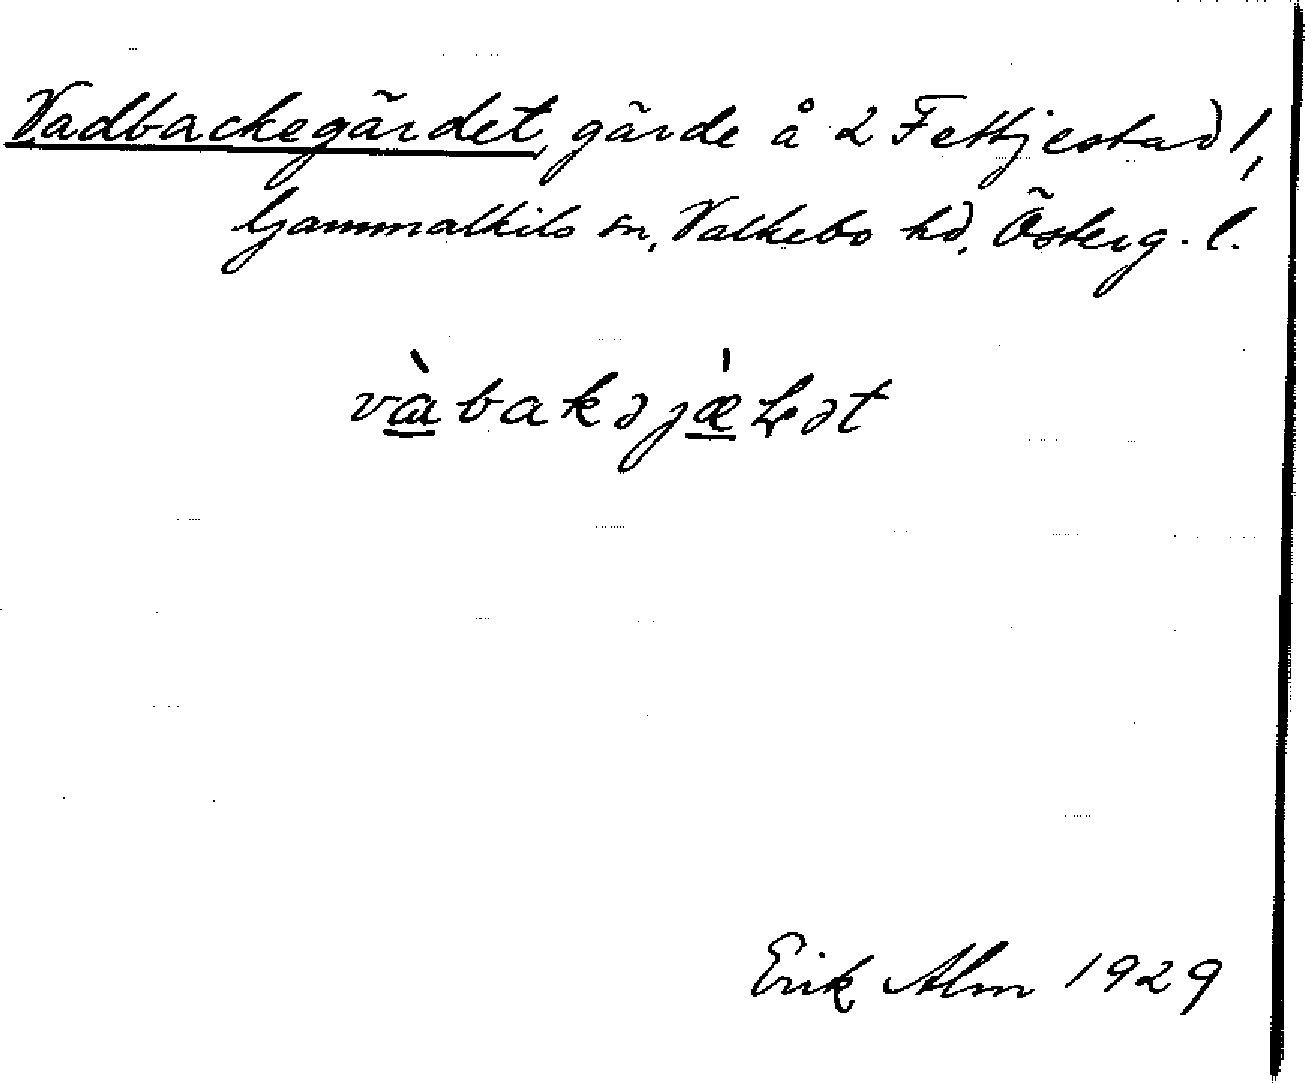 Vadbackegärdet, gärde å 2 Fettjestad 1,
Gammalkils sn, Valkebo hd, Österg. l.
vàbakəjæ̀ɽət
Erik Alm 1929